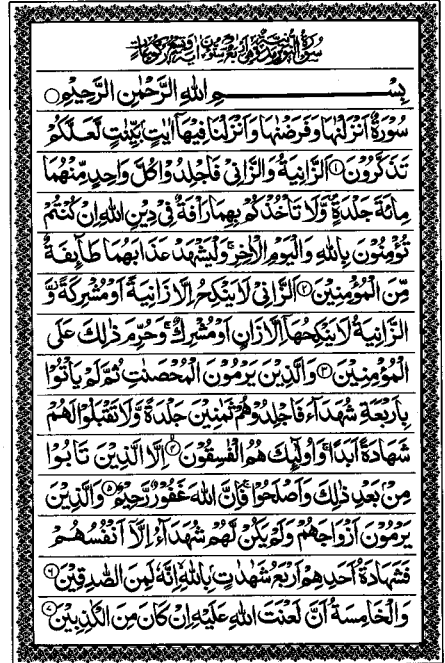 سُورَةُ النُّورِ مَدَنِيَّةٌ وَهِيَ اَرْبَعٌ وَسِتُّوْنَ اٰيَةً
بِسْمِ اللهِ الرَّحْمٰنِ الرَّحِيْمِ
سُوْرَةٌ اَنْزَلْنٰهَا وَفَرَضْنٰهَا وَاَنْزَلْنَا فِيْهَآ اٰيٰتٍۭ بَيِّنٰتٍ لَّعَلَّكُمْ
تَذَكَّرُوْنَ ۝۱ اَلزَّانِيَةُ وَالزَّانِيْ فَاجْلِدُوْا كُلَّ وَاحِدٍ مِّنْهُمَا
مِائَةَ جَلْدَةٍ ۪ وَّلَا تَاْخُذْكُمْ بِهِمَا رَاْفَةٌ فِيْ دِيْنِ اللهِ اِنْ كُنْتُمْ
تُؤْمِنُوْنَ بِاللهِ وَالْيَوْمِ الْاٰخِرِ ۚ وَلْيَشْهَدْ عَذَابَهُمَا طَآئِفَةٌ
مِّنَ الْمُؤْمِنِيْنَ ۝۲ اَلزَّانِيْ لَا يَنْكِحُ اِلَّا زَانِيَةً اَوْ مُشْرِكَةً ۫ وَّ
الزَّانِيَةُ لَا يَنْكِحُهَآ اِلَّا زَانٍ اَوْ مُشْرِكٌ ۚ وَحُرِّمَ ذٰلِكَ عَلَى
الْمُؤْمِنِيْنَ ۝۳ وَالَّذِيْنَ يَرْمُوْنَ الْمُحْصَنٰتِ ثُمَّ لَمْ يَاْتُوْا
بِاَرْبَعَةِ شُهَدَآءَ فَاجْلِدُوْهُمْ ثَمٰنِيْنَ جَلْدَةً وَّلَا تَقْبَلُوْا لَهُمْ
شَهَادَةً اَبَدًا ۚ وَاُولٰٓئِكَ هُمُ الْفٰسِقُوْنَ ۝۴ اِلَّا الَّذِيْنَ تَابُوْا
مِنْۢ بَعْدِ ذٰلِكَ وَاَصْلَحُوْا ۚ فَاِنَّ اللهَ غَفُوْرٌ رَّحِيْمٌ ۝۵ وَالَّذِيْنَ
يَرْمُوْنَ اَزْوَاجَهُمْ وَلَمْ يَكُنْ لَّهُمْ شُهَدَآءُ اِلَّآ اَنْفُسُهُمْ
فَشَهَادَةُ اَحَدِهِمْ اَرْبَعُ شَهٰدٰتٍۭ بِاللهِ ۙ اِنَّهٗ لَمِنَ الصّٰدِقِيْنَ ۝۶
وَالْخَامِسَةُ اَنَّ لَعْنَتَ اللهِ عَلَيْهِ اِنْ كَانَ مِنَ الْكٰذِبِيْنَ ۝۷